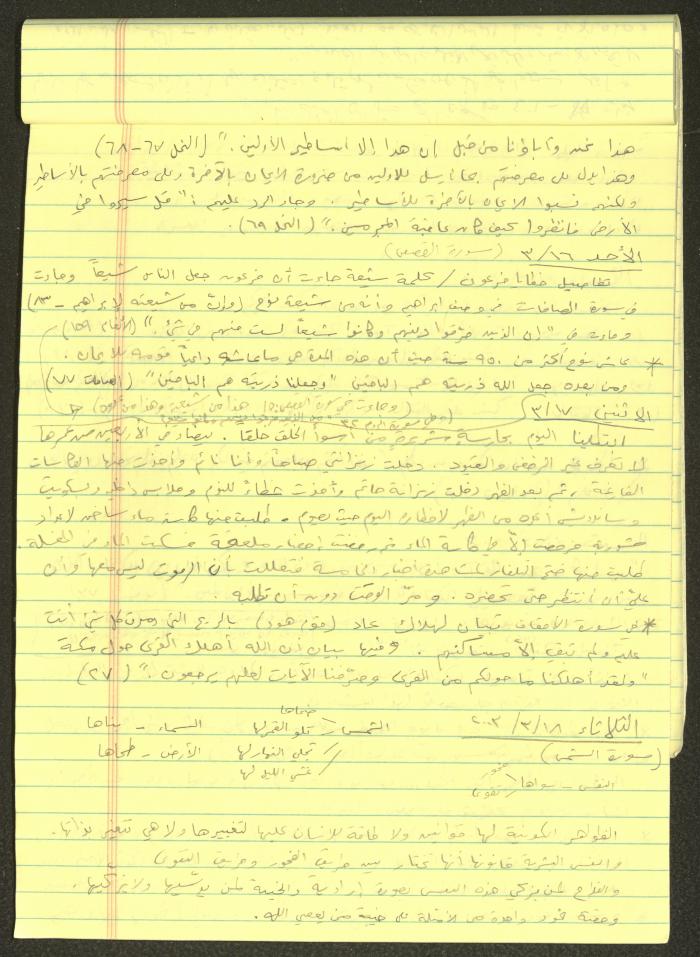 هذا نحن وآباؤنا من قبل إن هذا إلا أساطير الأولين." (النمل ٦٧-٦٨)
وهذا يدل على معرفتهم بما أرسل للأولين من ضرورة الايمان بالآخرة وعلى معرفتهم بالأساطير
ولكنهم نسبوا الايمان بالآخرة للأساطير. وجاء الرد عليهم: "قل سيروا في
الأرض فانظروا كيف كان عاقبة المجرمين." (النمل ٦٩).
الأحد ٣/١٦ (سورة القصص)
تفاصيل خفايا فرعون / كلمة شيعة جاءت أن فرعون جعل الناس شيعاً وجاءت
في سورة الصافات في وصف ابراهيم وأنه من شيعة نوح (وإنّ من شيعته لإبراهيم - ٨٣)
وجاءت في "إن الذين فرّقوا دينهم وكانوا شيعاً لست منهم في شيء." (الأنعام ١٥٩)
* عاش نوح أكثر من ٩٥٠ سنة حيث أن هذه المدة هي ما عاشه داعياً قومه للايمان.
ومن بعده جعل الله ذريته هم الباقين "وجعلنا ذريته هم الباقين" (الصافات ٧٧)
(وجاءت في سورة القصص ١٥ هذا من شيعته وهذا من عدوه)
الاثنين ٣/١٧
(وفي سورة الروم ٣٢ من الذين فرقوا دينهم وكانوا شيعاً)
ابتلينا اليوم بحارسة من أسوأ الخلق خلقاً. في الأربعين من عمرها
لا تعرف غير الرفض والقيود. دخلت زنزانتي صباحاً وأنا نائم وأخذت منها الكاسات
الفارغة، ثم بعد الظهر دخلت زنزانة حاتم وأخذت غطاء للنوم وملابس داخلية وبسكويت
وساندويش أعده من الظهر لافطاره اليوم حيث يصوم. طلبت منها كاسة ماء ساخن لاعداد
شوربة فرفضت إلاّ في كاسة الماء ثم رفضت إحضار ملعقة فسكبت الماء في المغسلة.
طلبت منها فتح التلفاز لمشاهدة أخبار الخامسة فتعللت بأن الريموت ليس معها وأن
عليّ أن أنتظر حتى تحضره. ومرّ الوقت دون أن تطلبه.
* في سورة الأحقاف تبيان لهلاك عاد (قوم هود) بالريح التي دمرت كل شيء أتت
عليه ولم تبق إلاّ مساكنهم. وفيها بيان أن الله أهلك القرى حول مكة
"ولقد أهلكنا ما حولكم من القرى وصرّفنا الآيات لعلهم يرجعون." (٢٧)
الثلاثاء ٢٠٠٣/٣/١٨
(سورة الشمس)
الشمس / ضحاها
تلو القمر لها
تجلي النهار لها
غشي الليل لها
السماء - بناها
الأرض - طحاها
النفس - سواها / فجور
تقوى
الظواهر الكونية لها قوانين ولا طاقة للانسان عليها لتغييرها ولا هي تتغير بذاتها.
والنفس البشرية قانونها أنها تختار بين طريق الفجور وطريق التقوى
والفلاح لمن يزكي هذه النفس بصورة إرادية والخيبة لمن يدسّيها ولا يزكيها.
وقصة ثمود واحدة من الأمثلة على خيبة من يعصي الله.